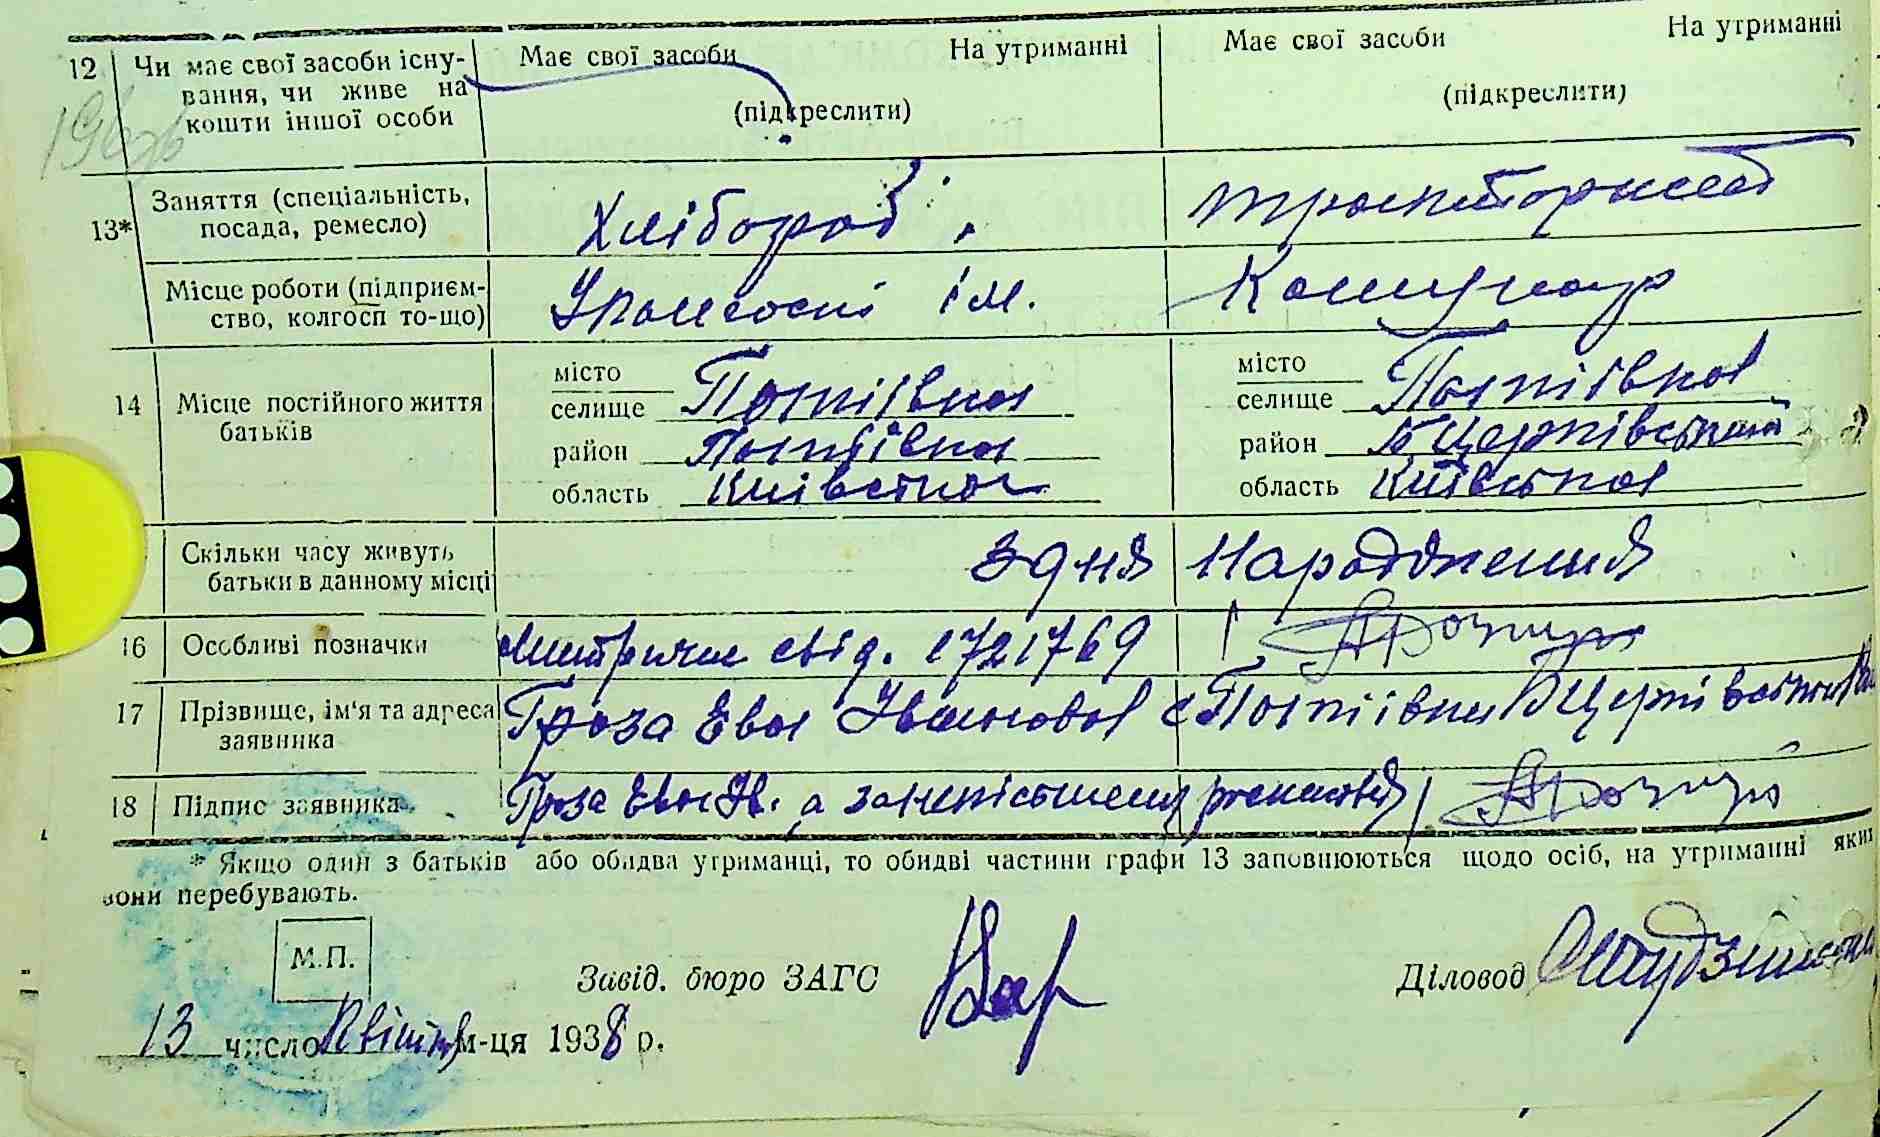 12 Чи має свої засоби існу- Має свої засоби На утриманні Має свої засоби На утриманні
вання, чи живе на
кошти іншої особи (підкреслити) (підкреслити)
13* Заняття (спеціальність, Хлібороб трактторист
посада, ремесло)
Місце роботи (підприєм- ім. Комунар
ство, колгосп то-що)
місто місто
14 Місце постійного життя селище Потіївка селище Потіївка
батьків район Потіївка район БЦерківський
область Київська область Київська
Скільки часу живуть З дня Народження
батьки в данному місці
16 Особливі позначки свід. 1721769
17 Прізвище, ім'я та адреса Гроза Ева Івановна с Потіївки БЦерківського
заявника
18 Підпис заявника Гроза Ева Ів. а
* Якщо один з батьків або обидва утриманці, то обидві частини графи 13 заповнюються щодо осіб, на утриманні яких
вони перебувають.
М.П.
Завід. бюро ЗАГС Діловод
13 число Квітня м-ця 1938 р.